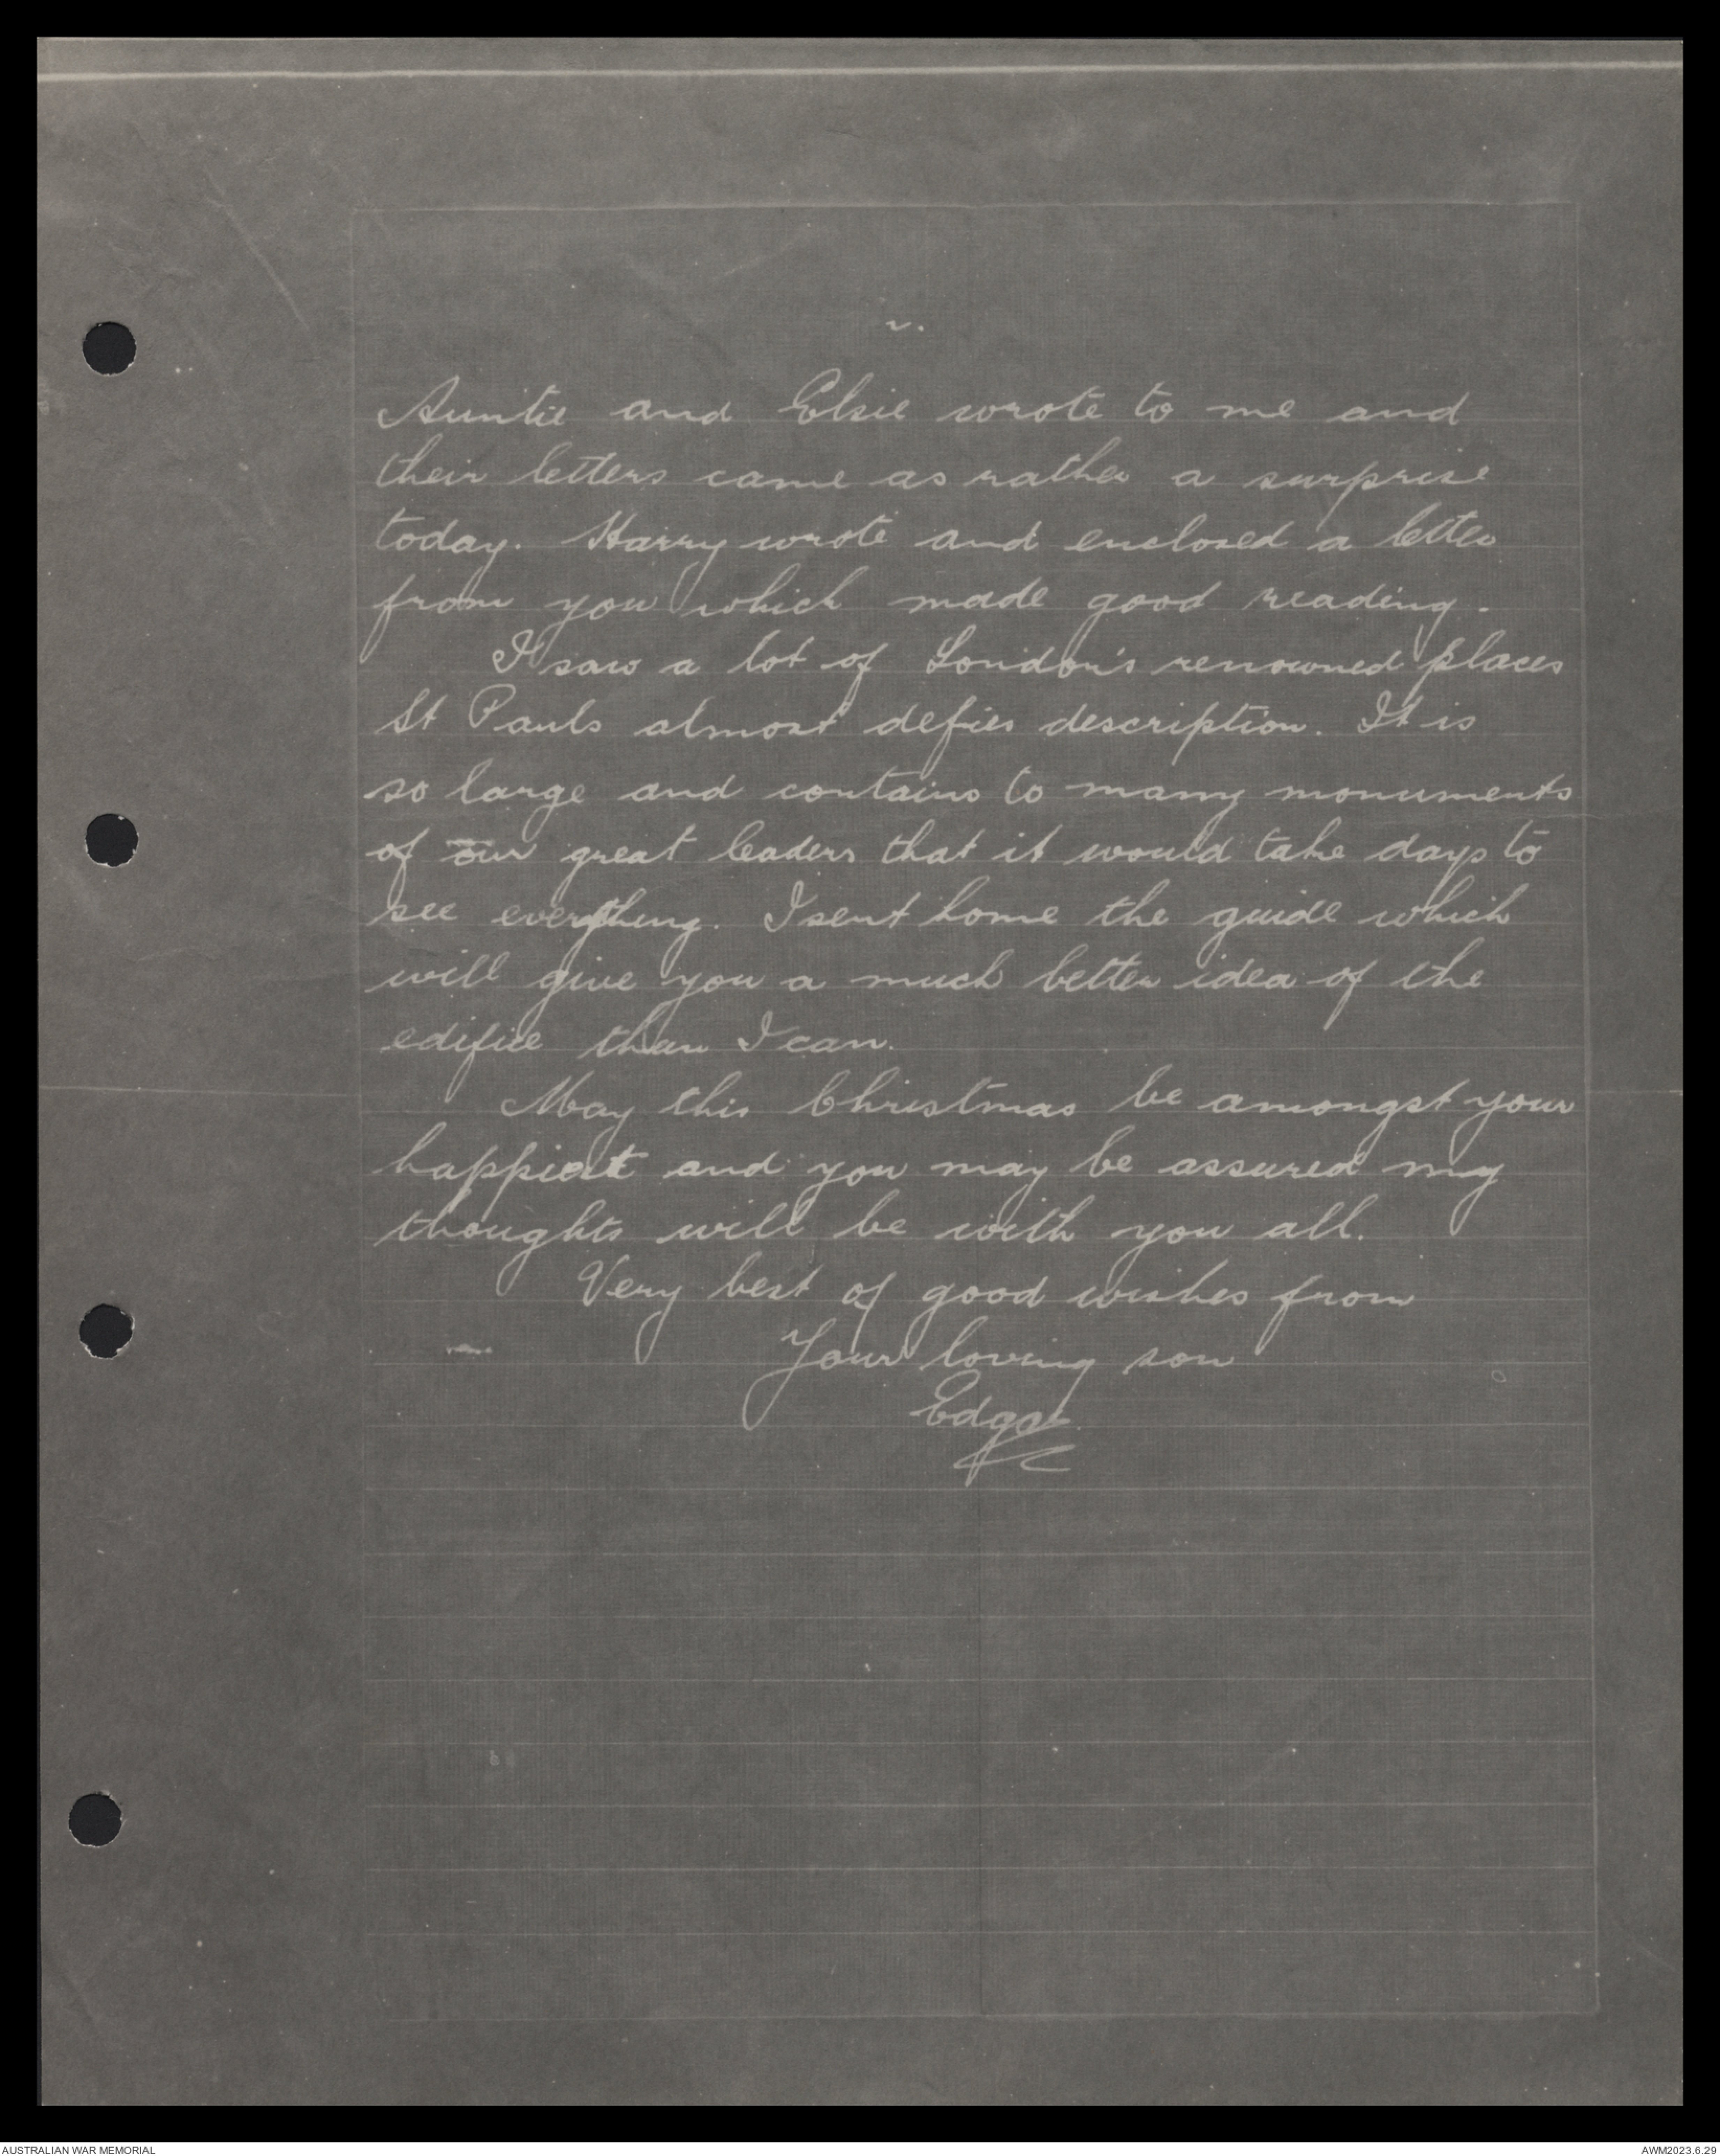 2.
Auntie and Elsie wrote to me and
their letters came as rather a surprise
today. Harry wrote and enclosed a letter
from you which made good reading.
I saw a lot of London's renowned places
St Pauls almost defies description. It is
so large and contains to many monuments
of our great leaders that it would take days to
see everything. I sent home the guide which
will give you a much better idea of the
edifice than I can.
May this Christmas be amongst your
happiest and you may be assured my
thoughts will be with you all.
Very best of good wishes from
Your loving son
Edgar
AUSTRALIAN WAR MEMORIAL
AWM2023.6.29